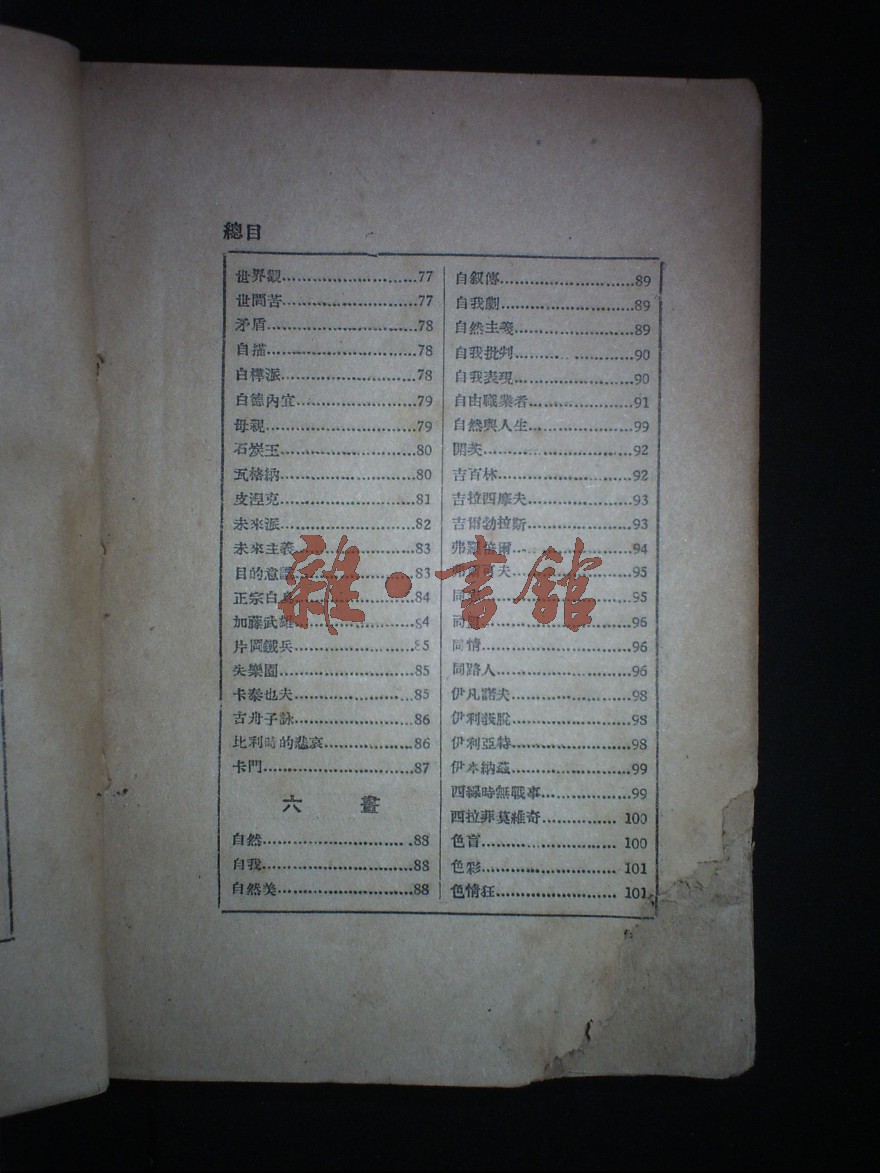 總目
世界觀……77
世間苦……77
矛盾……78
自描……78
白樺派……78
白德內宜……79
母親……79
石炭王……80
瓦格納……80
皮涅克……81
未來派……82
未來主義……83
目的意識……83
正宗白鳥……84
加藤武雄……84
片岡鐵兵……85
失樂園……85
卡泰也夫……85
古舟子詠……86
比利時的悲哀……86
卡門……87
六 畫
自然……88
自我……88
自然美……88
自叙傳……89
自我劇……89
自然主義……89
自我批判……90
自我表現……90
自由職業者……91
自然與人生……99
開茨……92
吉百林……92
吉拉西摩夫……93
吉爾勃拉斯……93
弗羅倍爾……94
可夫……95
同……95
……96
同情……96
同路人……96
伊凡諾夫……98
伊利……98
伊利亞特……98
伊本納茲……99
西線時無戰事……99
西拉菲莫維奇……100
色盲……100
色彩……101
色情狂……101
雜·書館